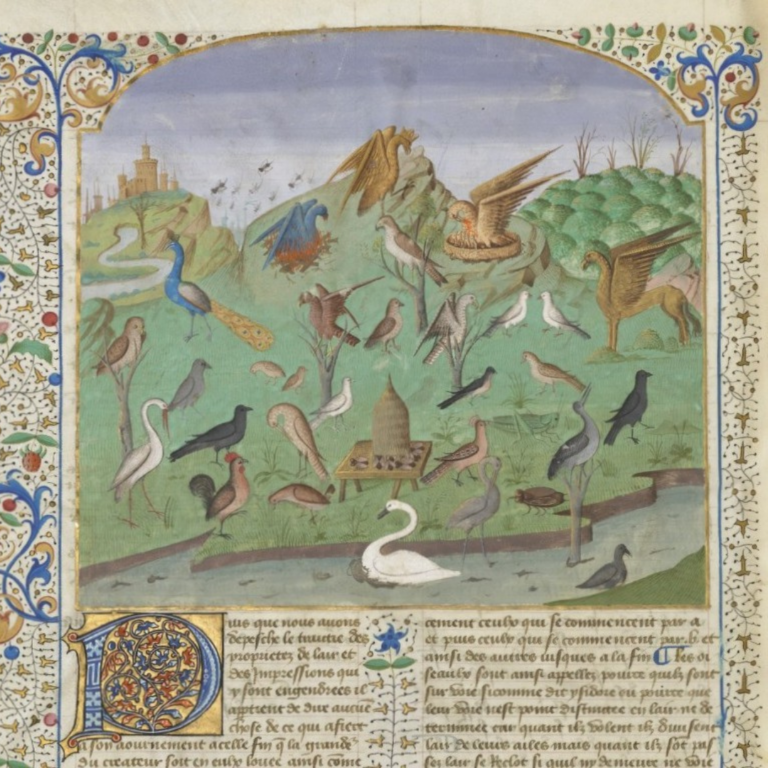 Puis que nous auons
depesche le traictie des
proprietez de lair et
des Jmpressions qui
y sont engendrees il
appartient de dire aucune
chose de ce qui affiert
a son aournement a celle fin q̄ la grande
du createur soit en eulx louee ainsi come
cement ceulx qui se commencent par a
et puis ceulx qui se commencent par b et
ainsi des autres iusques a la fin Les oi
seaulx sont ainsi appellez pource quilz sont
sur voie sicomme dit ysidore ou pource que
leur voie nest point distinctee en lair ne de
terminee car quant ilz volent ilz diuisent
lair de leurs ailes mais quant ilz sōt pas
sez lair se reclot si quil ny demeure ne voie